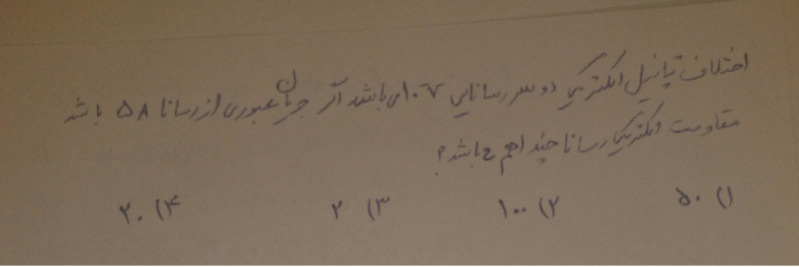 اختلاف پتانسیل الکتریکی دو سر رسانایی ۱۰V می باشد اگر جریان عبوری از رسانا ۵A باشد
مقاومت الکتریکی رسانا چند اهم می باشد؟
۱) ۵۰ ۲) ۱۰۰ ۳) ۲ ۴) ۲۰